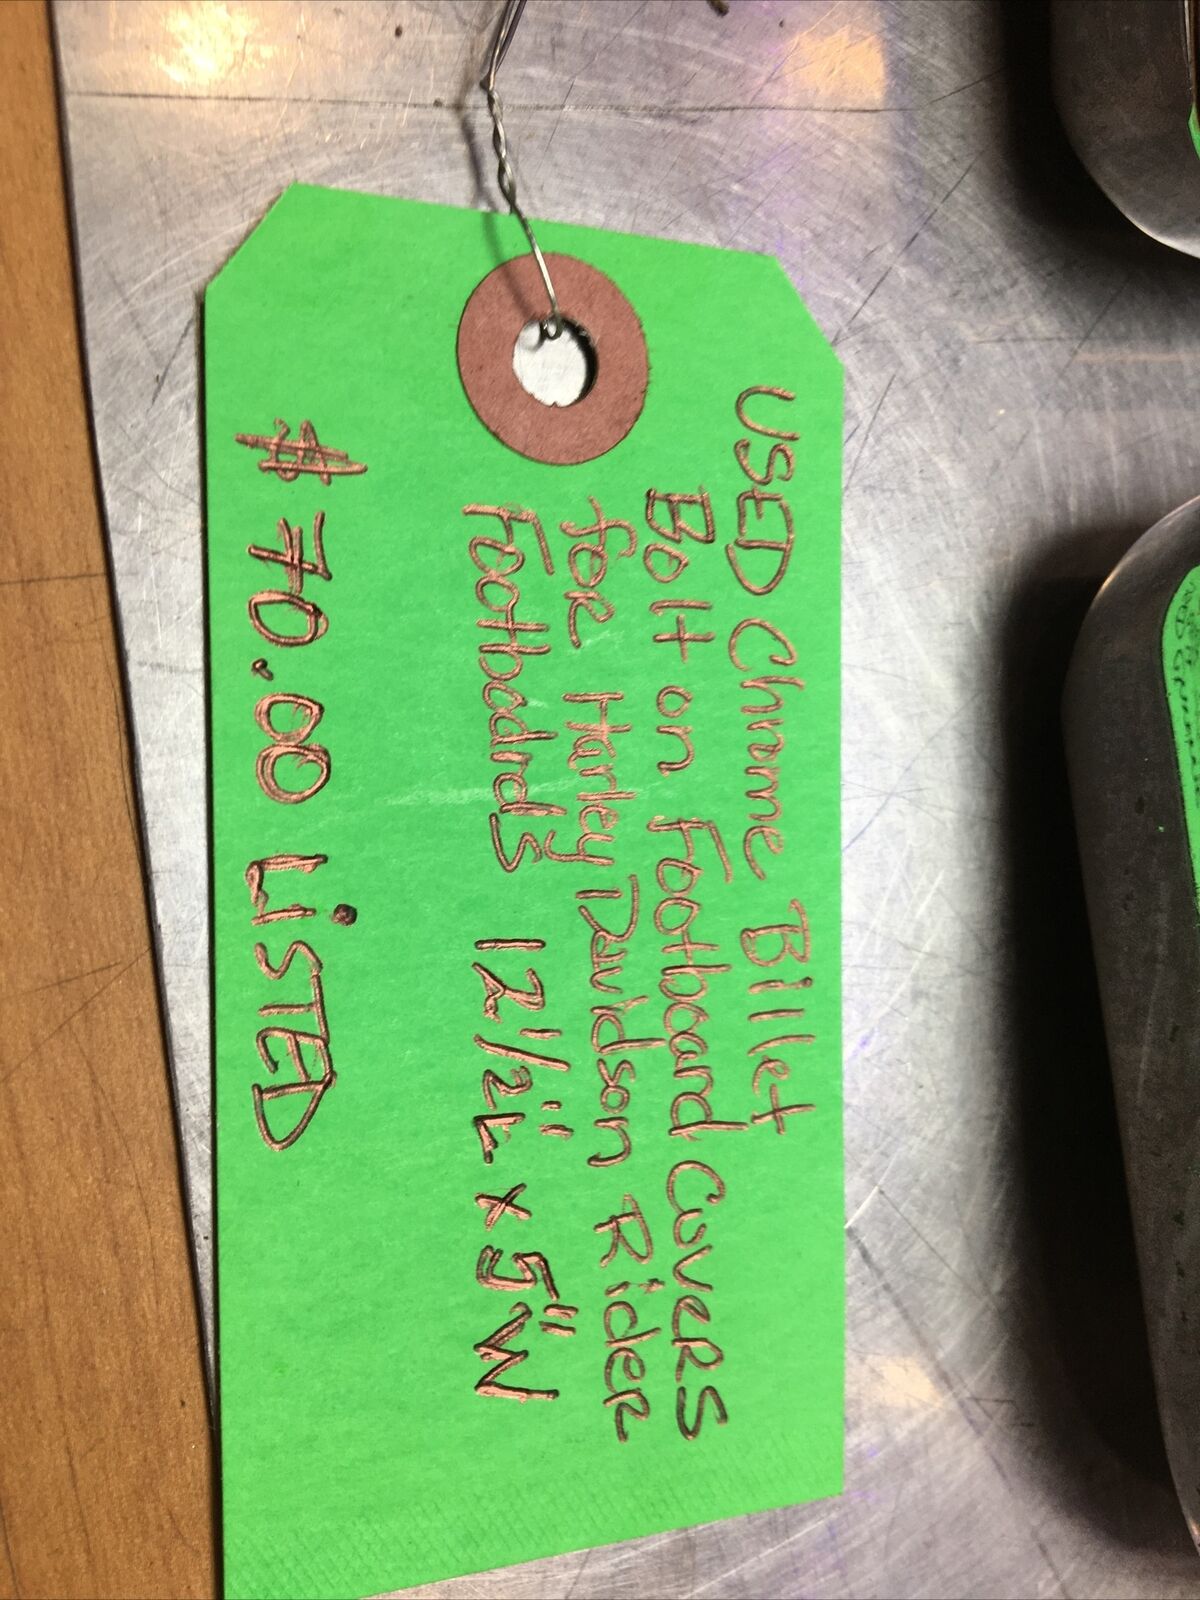 USED Chrome Billet
Bolt on Footboard Covers
for Harley Davidson Rider
Footbadrds 12 1/2"L x 5"W
# 70.00 LiSTED